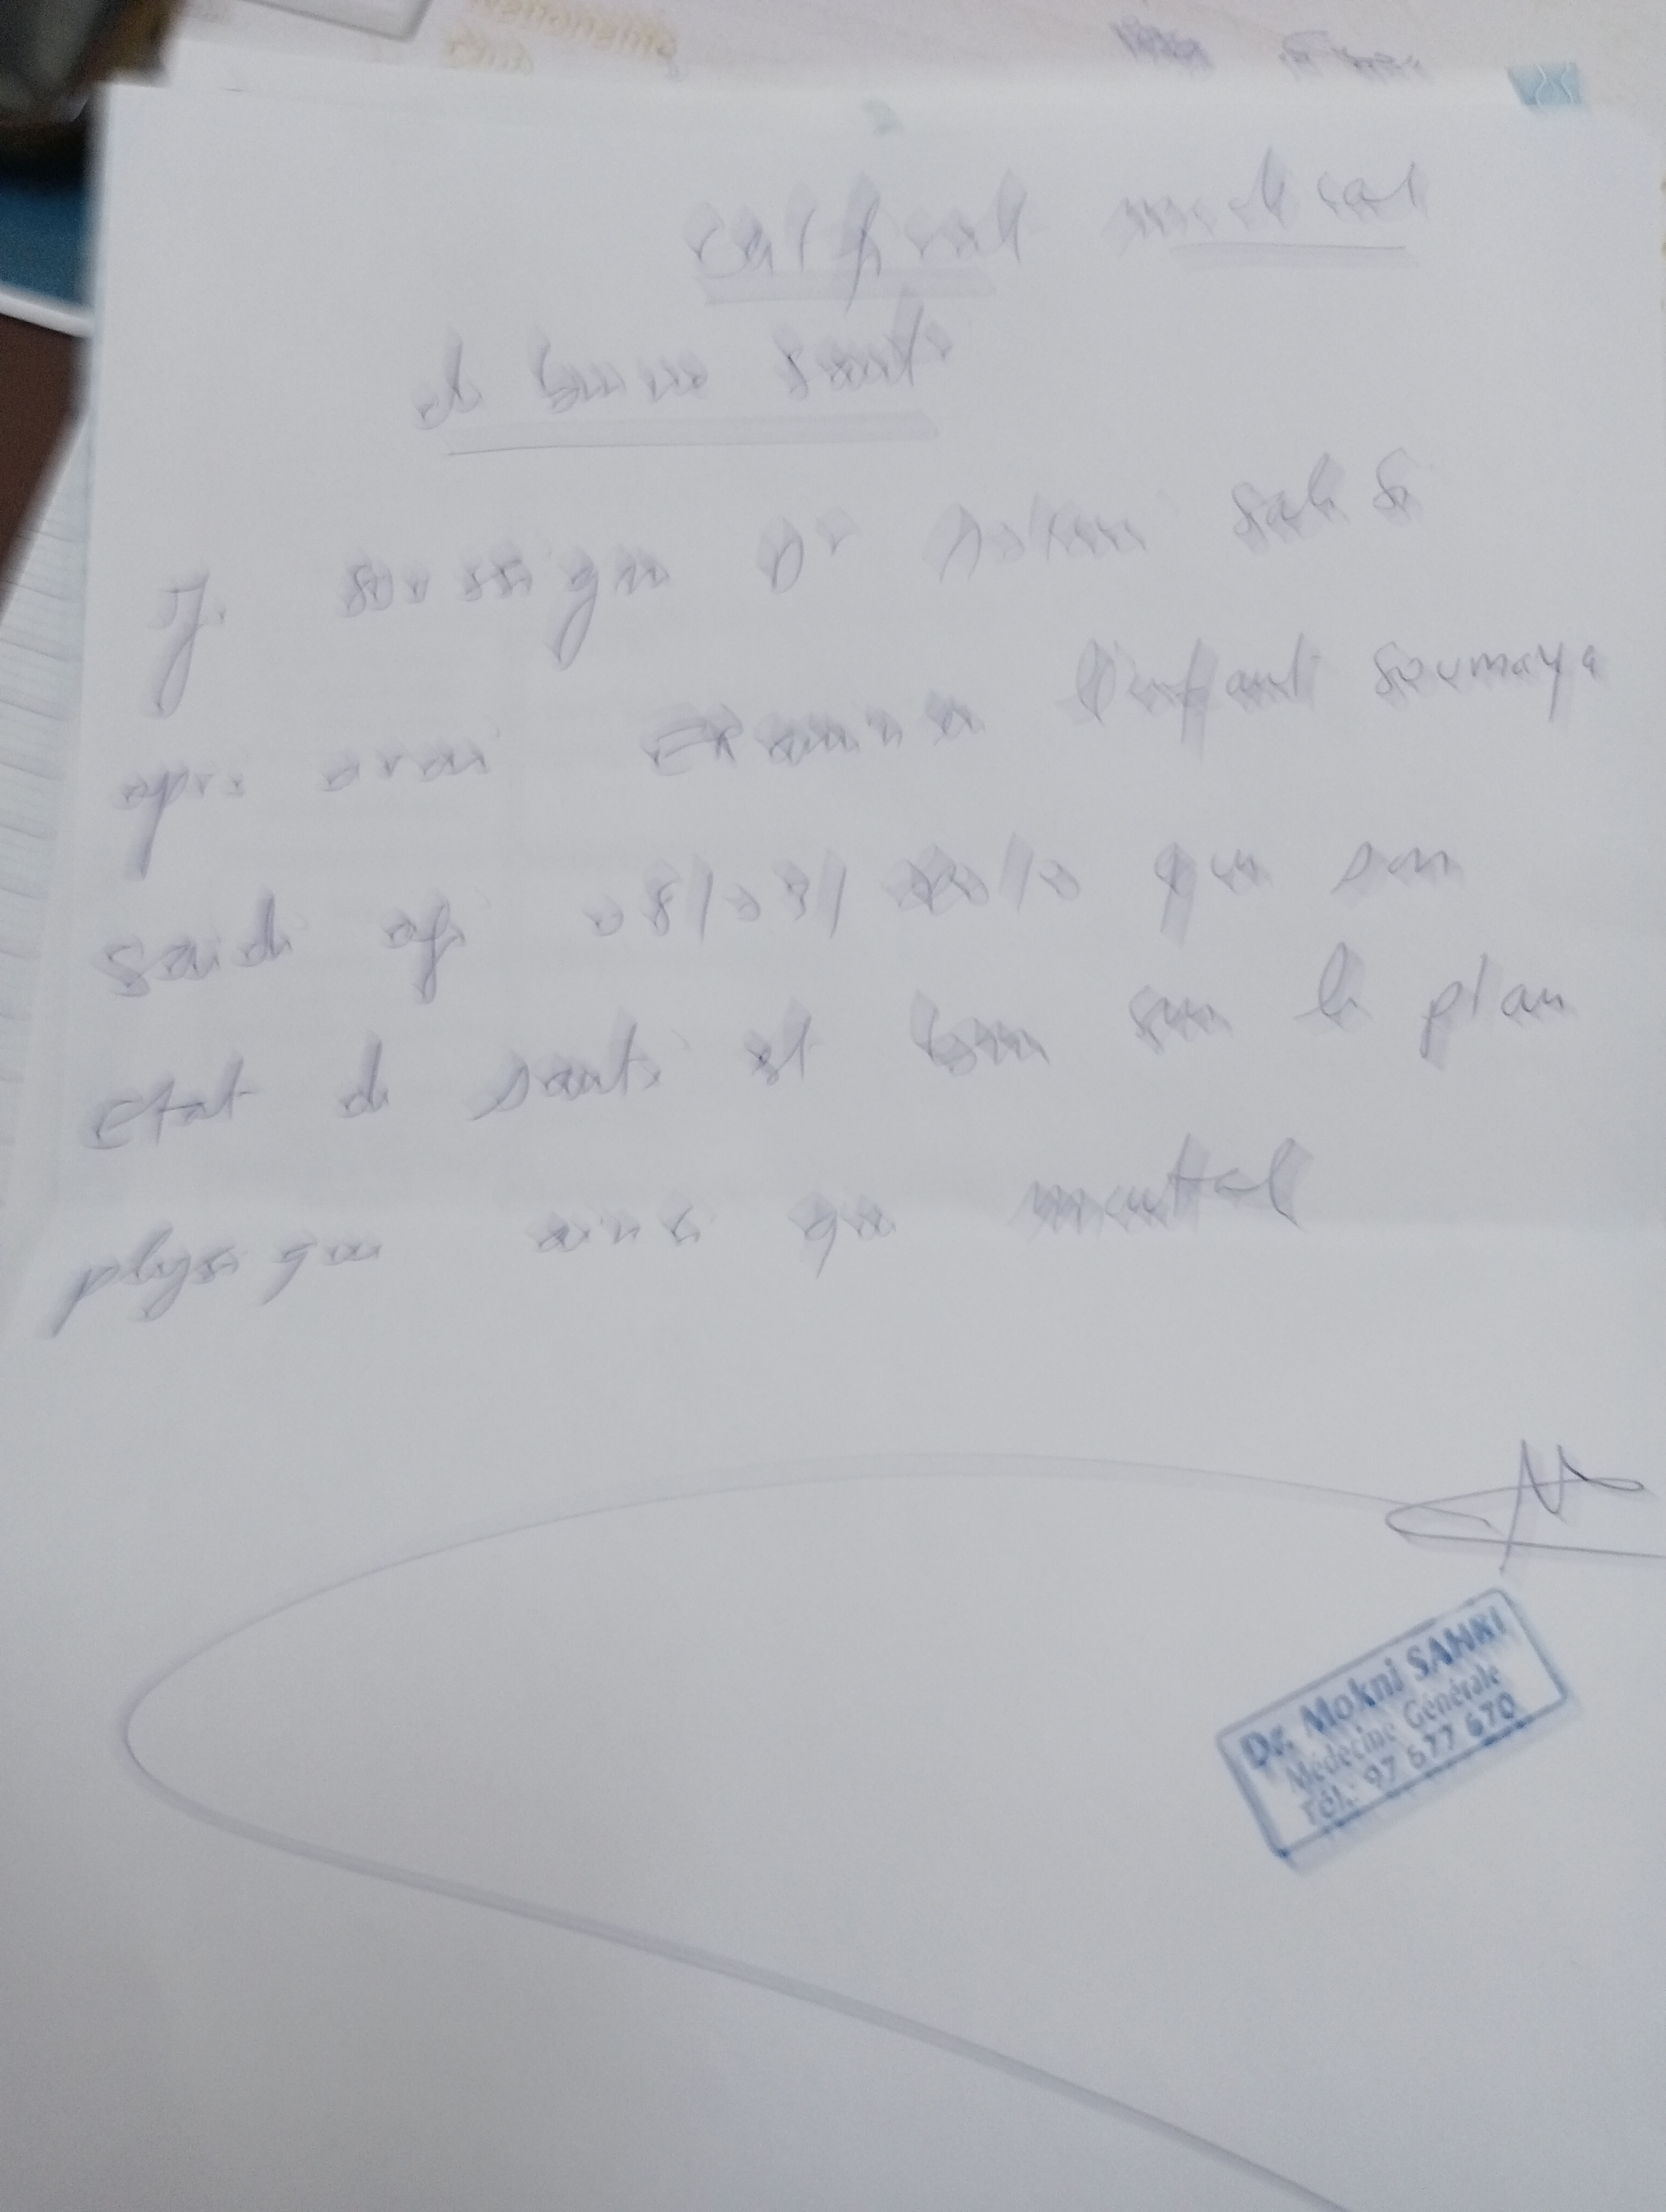 certificat medical
de bonne santé
Je soussigné Dr Mokni
après avoir examiné l'enfant Soumaya
Saidi agé 08/03/2010 que son
état de santé est bon sur le plan
physique ainsi que mental
Dr. Mokni SAHBI
Médecine Générale
Tél.: 97 677 670